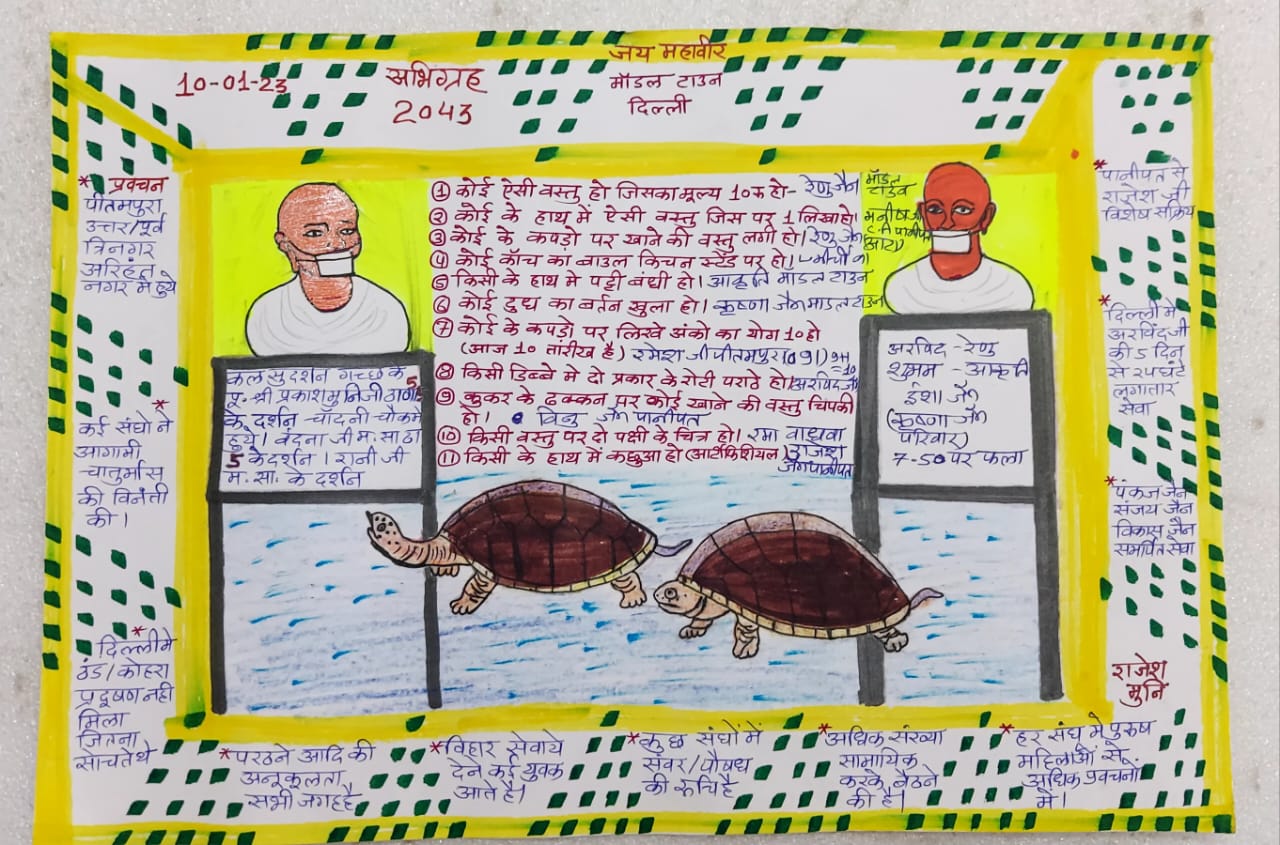 जय महावीर
10-01-23
अभिग्रह
2043
मॉडल टाउन
दिल्ली
* प्रवचन
पीतमपुरा
उत्तर/पूर्व
त्रिनगर
अरिहंत
नगर मे हुये
*
कई संघो ने
आगामी
चातुर्मास
की विनंती
की।
*
दिल्ली मे
ठंड/कोहरा
प्रदूषण नही
मिला
जितना
सोचते थे
① कोई ऐसी वस्तु हो जिसका मूल्य 10रु हो- रेणु जैन मॉडल टाउन
② कोई के हाथ में ऐसी वस्तु जिस पर 1 लिखा हो। मनीष जी
③ कोई के कपड़ो पर खाने की वस्तु लगी हो। रेणु जैन
④ कोई काँच का बाउल किचन स्टैंड पर हो।
⑤ किसी के हाथ में पट्टी बंधी हो। आकृति मॉडल टाउन
⑥ कोई दुध का बर्तन खुला हो। कृष्णा जैन माडल टाउन
⑦ कोई के कपड़ो पर लिखे अंको का योग 10 हो
(आज 10 तारीख है) रमेश जी पीतमपुरा (091)
⑧ किसी डिब्बे मे दो प्रकार के रोटी पराठे हो। अरविंद जैन
⑨ कुकर के ढक्कन पर कोई खाने की वस्तु चिपकी
हो। जैन पानीपत
⑩ किसी वस्तु पर दो पक्षी के चित्र हो। रमा वाधवा
⑪ किसी के हाथ में कछुआ हो (आर्टीफिशियल) राजेश
जैन पानीपत
कल सुदर्शन गच्छ के
पू. श्री प्रकाश मुनिजी ठाणा 5
के दर्शन चाँदनी चौक मे
हुये। वंदना जी म.सा ठा
5 के दर्शन। रानी जी
म. सा. के दर्शन
अरविंद -रेणु
शुभम - आकृति
ईशा जैन
(कृष्णा जैन
परिवार)
7-50 पर फला
* पानीपत से
राजेश जी
विशेष सक्रिय
* दिल्ली मे
अरविंद जी
की 5 दिन
से घंटे
लगातार
सेवा
* पंकज जैन
संजय जैन
विकास जैन
समर्पित सेवा
राजेश
मुनि
* परठने आदि की
अनुकूलता
सभी जगह है
* विहार सेवाये
देने कई युवक
आते है।
* कुछ संघों में
संवर/पौषध
की रुचि है
* अधिक संख्या
सामायिक
करके बैठने
की है।
* हर संघ मे पुरुष
महिलाओं से
अधिक प्रवचनो
में।